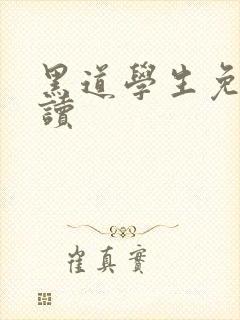 黑道學生免
讀
崔真實